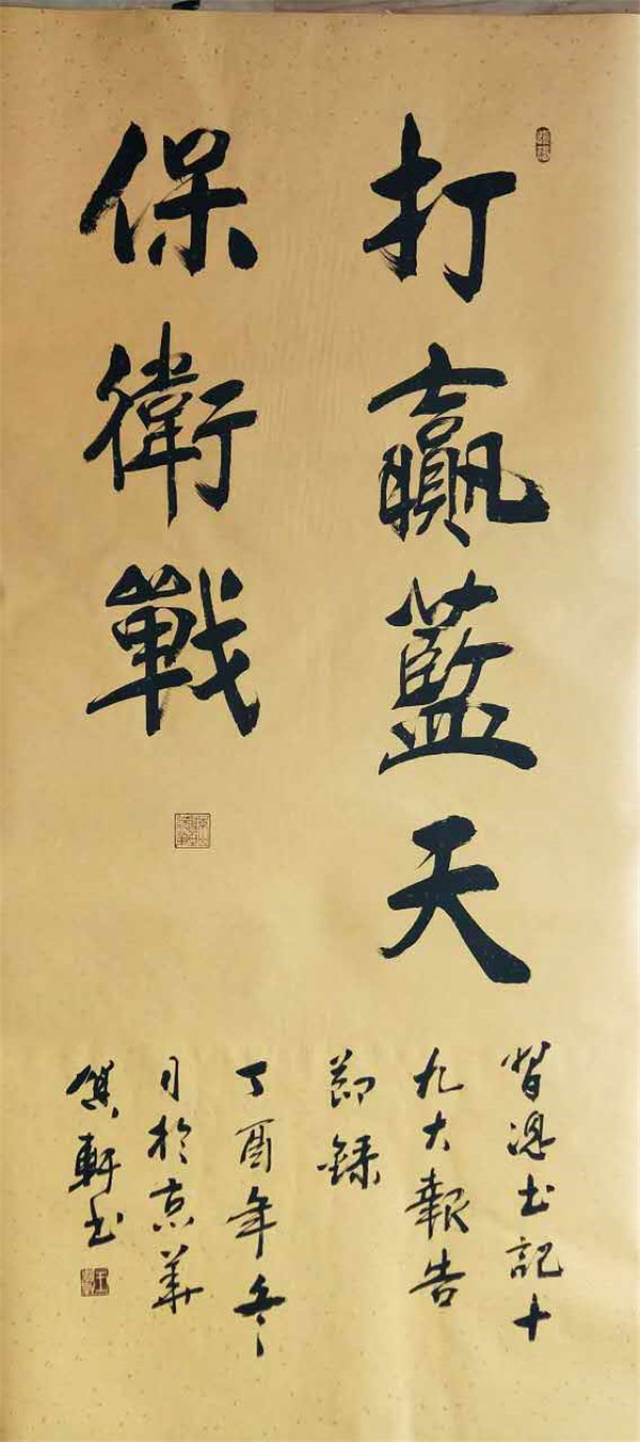 打贏藍天
保衛戰
習總書記十
九大報告
節錄
丁酉年冬
月於京華
軒書